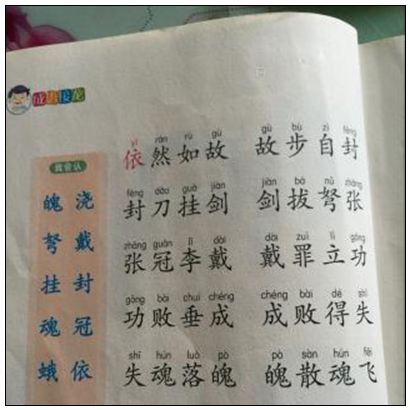 成语接龙
yī rán rú gù gù bù zì fēng
依然如故 故步自封
fēng dāo guà jiàn jiàn bá nǔ zhāng
封刀挂剑 剑拔弩张
zhāng guān lǐ dài dài zuì lì gōng
张冠李戴 戴罪立功
gōng bài chuí chéng chéng bài dé shī
功败垂成 成败得失
shī hún luò pò pò sàn hún fēi
失魂落魄 魄散魂飞
我会认
魄 浇
弩 戴
挂 封
魂 冠
蛾 依